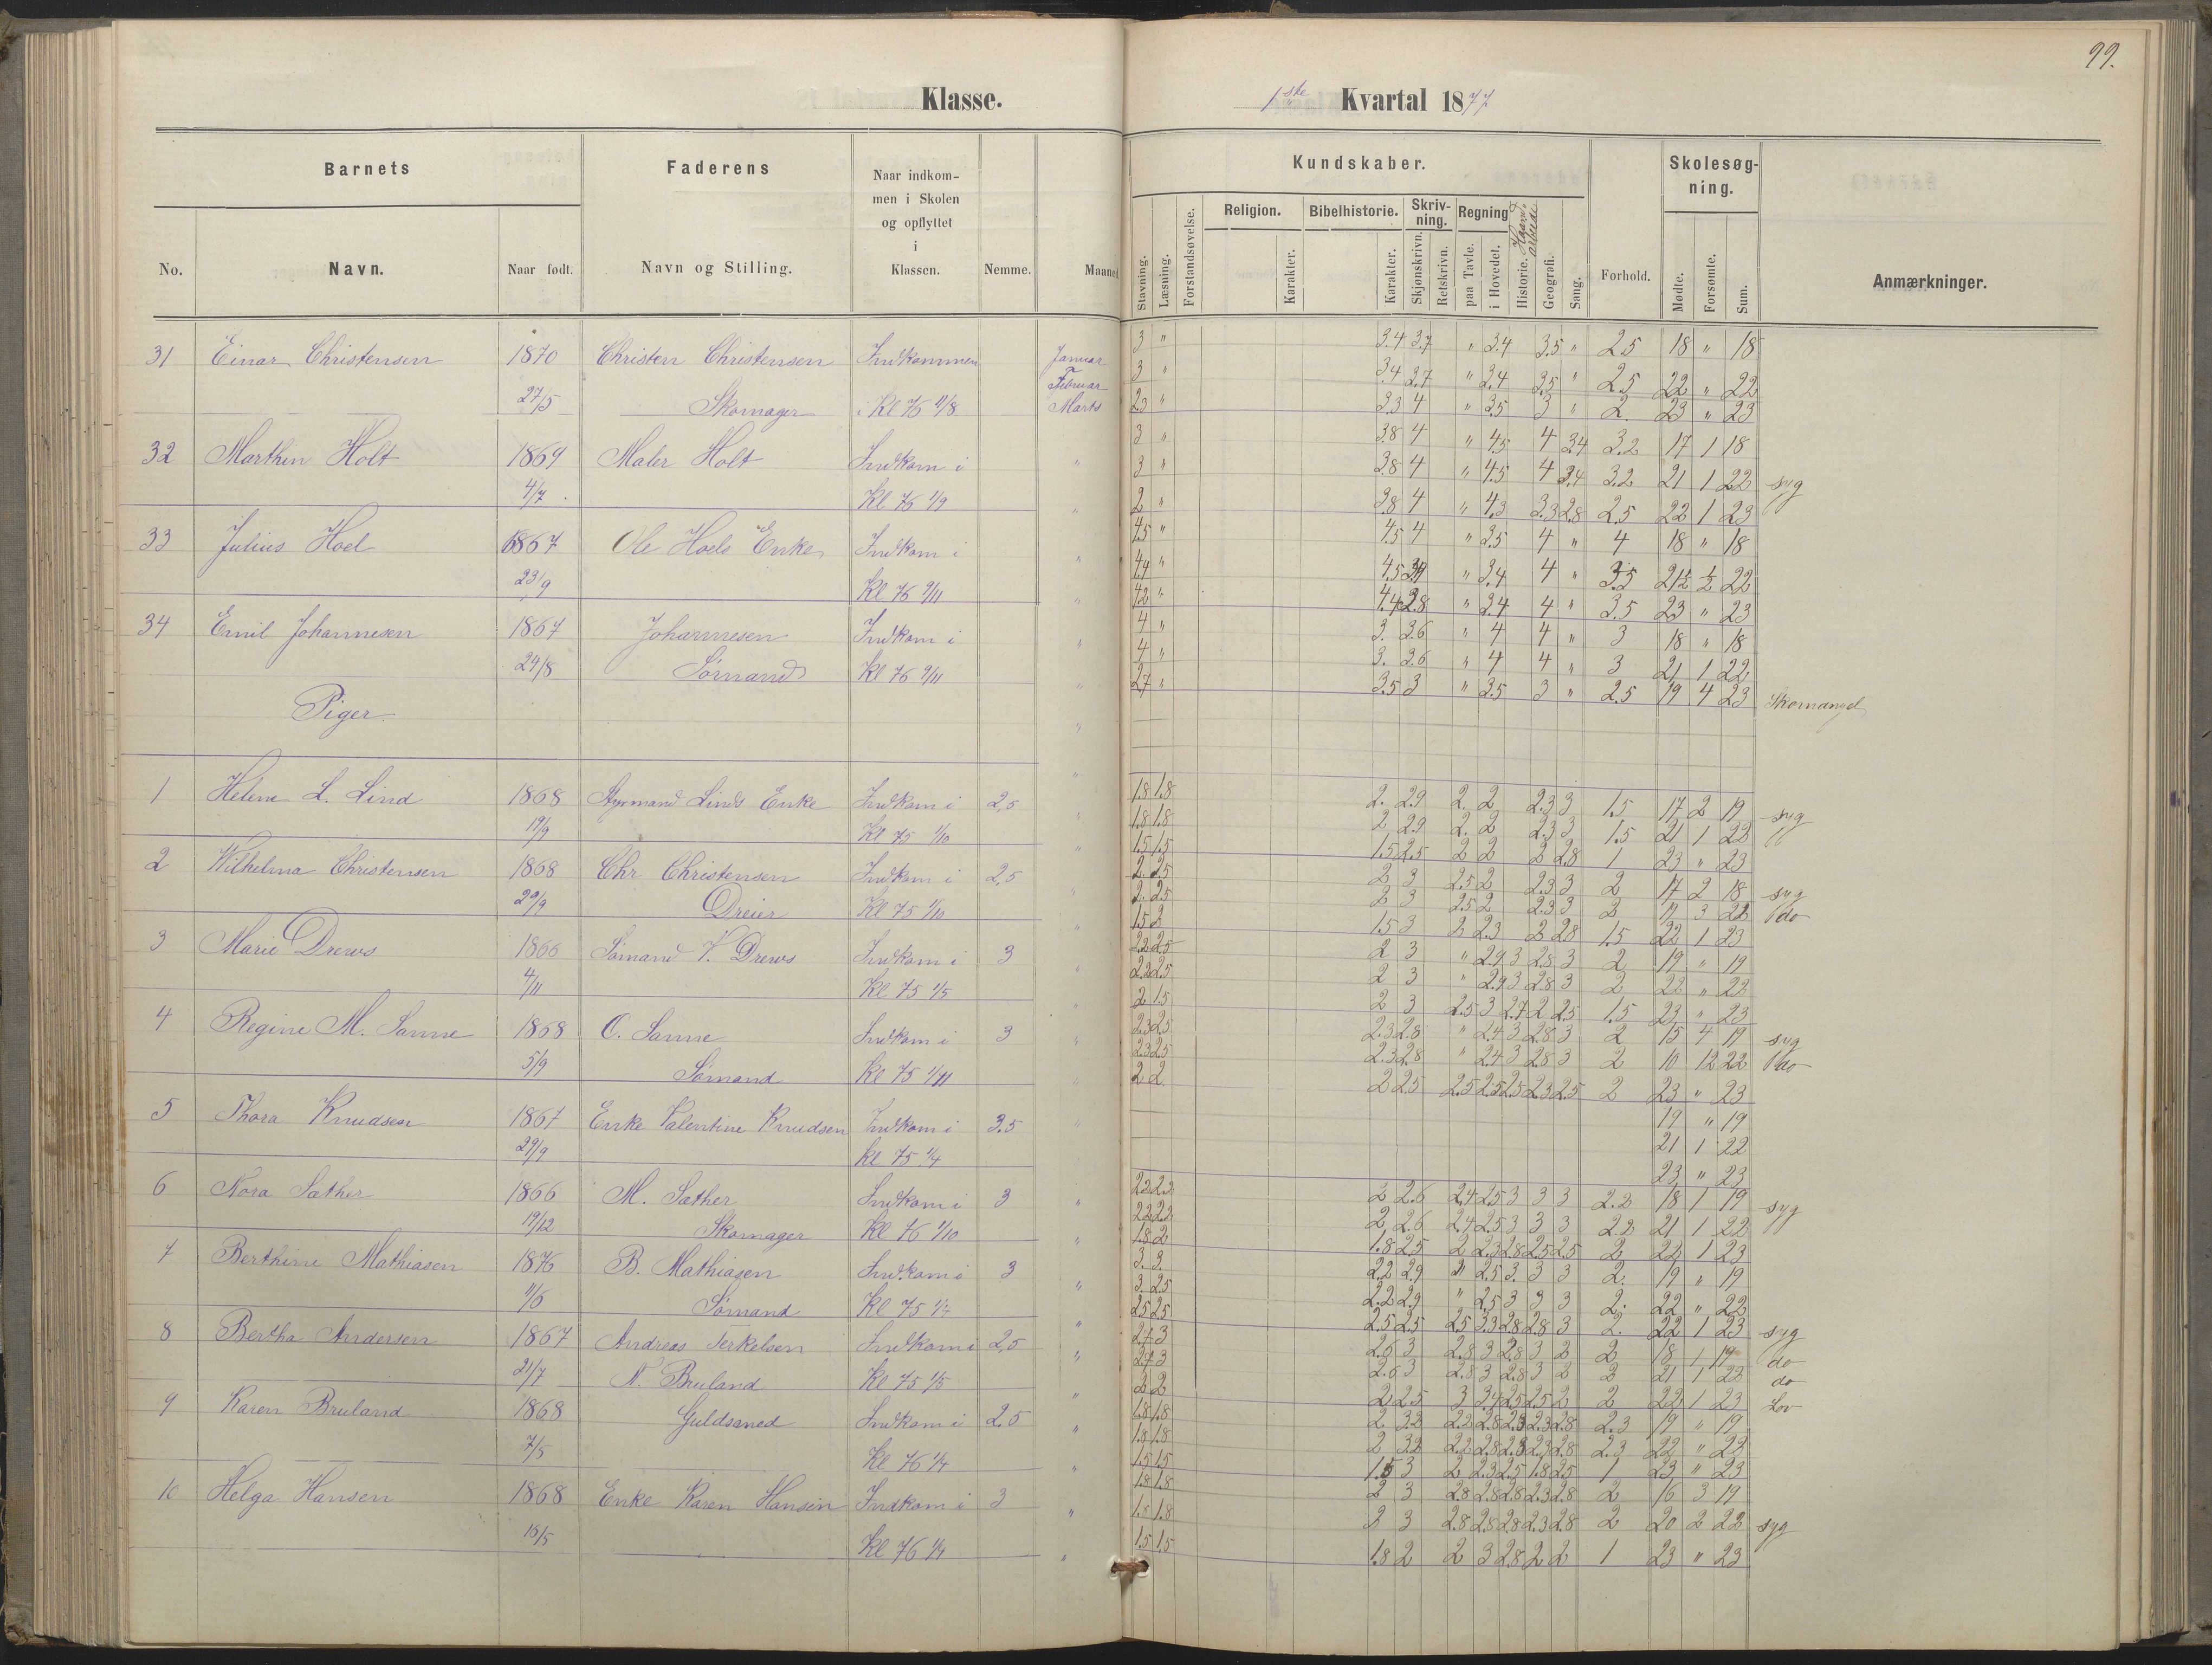 99.
Klasse.
1ste Kvartal 1877
Barnets
Faderens
Naar indkom-
men i Skolen
og opflyttet
i
Klassen.
Nemme.
Maaned
No.
Navn.
Naar født.
Navn og Stilling.
Kundskaber.
Skolesøg-
ning.
Religion.
Bibelhistorie.
Skriv-
ning.
Regning
Haand-
arbeide
Stavning.
Læsning.
Forstandsøvelse.
Karakter.
Karakter.
Skjønskrivn.
Retskrivn.
paa Tavle.
i Hovedet.
Historie.
Geografi.
Sang.
Forhold.
Mødte.
Forsømte.
Sum.
Anmærkninger.
31 Einar Christensen 1870 Christen Christensen Indkommen Januar 3 " 3.4 3.7 " 3.4 3.5 " 2.5 18 " 18
27/5 Skomager i Kl 76 11/8 Februar 3 " 3.4 3.7 " 3.4 3.5 " 2.5 22 " 22
Marts 2.3 " 3.3 4 " 3.5 3 " 2. 23 " 23
32 Marthin Holt 1869 Maler Holt Indkom i " 3 " 3.8 4 " 4.5 4 3.4 3.2 17 1 18
4/7 Kl 76 1/9 3 " 3.8 4 " 4.5 4 3.4 3.2 21 1 22 syg
" 2 " 3.8 4 " 4.3 3.3 2.8 2.5 22 1 23
33 Julius Hoel 1867 Ole Hoels Enke Indkom i " 4.5 " 4.5 4 " 3.5 4 " 4 18 " 18
23/9 Kl 76 9/11 4.4 " 4.5 " 3.4 4 " 3.5 21½ ½ 22
" 4.2 " 4.4 3.8 " 3.4 4 " 3.5 23 " 23
34 Emil Johannesen 1867 Johannesen Indkom i " 4 " 3. 3.6 " 4 4 " 3 18 " 18
24/8 Sømand Kl 76 9/11 4 " 3. 3.6 " 4 4 " 3 21 1 22
" 2.7 " 3.5 3 " 3.5 3 " 2.5 19 4 23 Skomangel
Piger.
1 Helene L. Lind 1868 Styrmand Linds Enke Indkom i 2,5 1.8 1.8 2. 2.9 2. 2 2.3 3 1.5 17 2 19 syg
19/9 Kl 75 1/10 1.8 1.8 2 2.9 2. 2 2.3 3 1.5 21 1 22
1.5 1.5 1.5 2.5 2 2 2 2.8 1 23 " 23
2 Wilhelma Christensen 1868 Chr Christensen Indkom i 2,5 2 2.5 2 3 2.5 2 2.3 3 2 17 2 18 syg
29/9 Dreier Kl 75 1/10 2. 2.5 2 3 2.5 2 2.3 3 2 3 22 do
1.5 2 1.5 3 2 2.3 2 2.8 1.5 22 1 23
3 Marie Drews 1866 Sømand V. Drews Indkom i 3 2.2 2.5 2 3 " 2.9 3 2.8 3 2 19 " 19
4/11 Kl 75 1/5 2.2 2.5 2 3 " 2.9 3 2.8 3 2 22 " 22
2 1.5 2 3 2.5 3 2.7 2 2.5 1.5 23 " 23
4 Regine M. Sanne 1868 O. Sanne Indkom i 3 2.3 2.5 2.3 2.8 " 2.4 3 2.8 3 2 15 4 19 syg
5/9 Sømand Kl 75 1/11 2.3 2.5 2.3 2.8 " 2.4 3 2.8 3 2 10 12 22 do
2 2. 2 2.5 2.5 2.5 2.5 2.3 2.5 2 23 " 23
5 Thora Knudsen 1867 Enke Valentine Knudsen Indkom i 3.5 19 " 19
29/9 Kl 75 1/4 21 1 22
23 " 23
6 Nora Sather 1866 M. Sather Indkom i 3 2.2 2.2 2 2.6 2.4 2.5 3 3 3 2.2 18 1 19 syg
19/12 Skomager Kl 76 1/10 2.2 2.2 2 2.6 2.4 2.5 3 3 3 2.2 21 1 22
1.8 2 1.8 2.5 2 2.3 2.8 2.5 2.5 2 22 1 23
7 Berthine Mathiasen 1876 B. Mathiasen Indkom i 3 3. 3. 2.2 2.9 " 2.5 3. 3 3 2. 19 " 19
11/6 Sømand Kl 75 1/4 3 2.5 2.2 2.9 " 2.5 3 3 3 2. 22 " 22
2.5 2.5 2.5 2.5 2.5 3.3 2.8 2.8 3 2. 22 1 23 syg
8 Bertha Andersen 1867 Andreas Terkelsen Indkom i 2,5 2.7 3 2.6 3 2.8 3 2.8 3 2 2 18 1 19 do
21/7 N. Bruland Kl 75 1/5 2.7 3 2.6 3 2.8 3 2.8 3 2 2 21 1 22 do
2 2 2 2.5 3 3.4 2.5 2.5 2 2 22 1 23 Lov
9 Karen Bruland 1868 Guldsmed Indkom i 2,5 1.8 1.8 2. 3.2 2.2 2.8 2.3 2.3 2.8 2.3 19 " 19
7/5 Kl 76 1/4 1.8 1.8 2 3.2 2.2 2.8 2.3 2.3 2.8 2.3 22 " 22
1.5 1.5 1.5 3 2 2.3 2.5 1.8 2.5 1 23 " 23
10 Helga Hansen 1868 Enke Karen Hansen Indkom i 3 1.8 1.8 2 3 2.8 2.8 2.8 2.3 2.8 2 16 3 19
18/5 Kl 76 1/4 1.8 1.8 2 3 2.8 2.8 2.8 2.3 2.8 2 20 2 22 syg
1.5 1.5 1.8 2 2 3 2.8 2 2 1 23 " 23